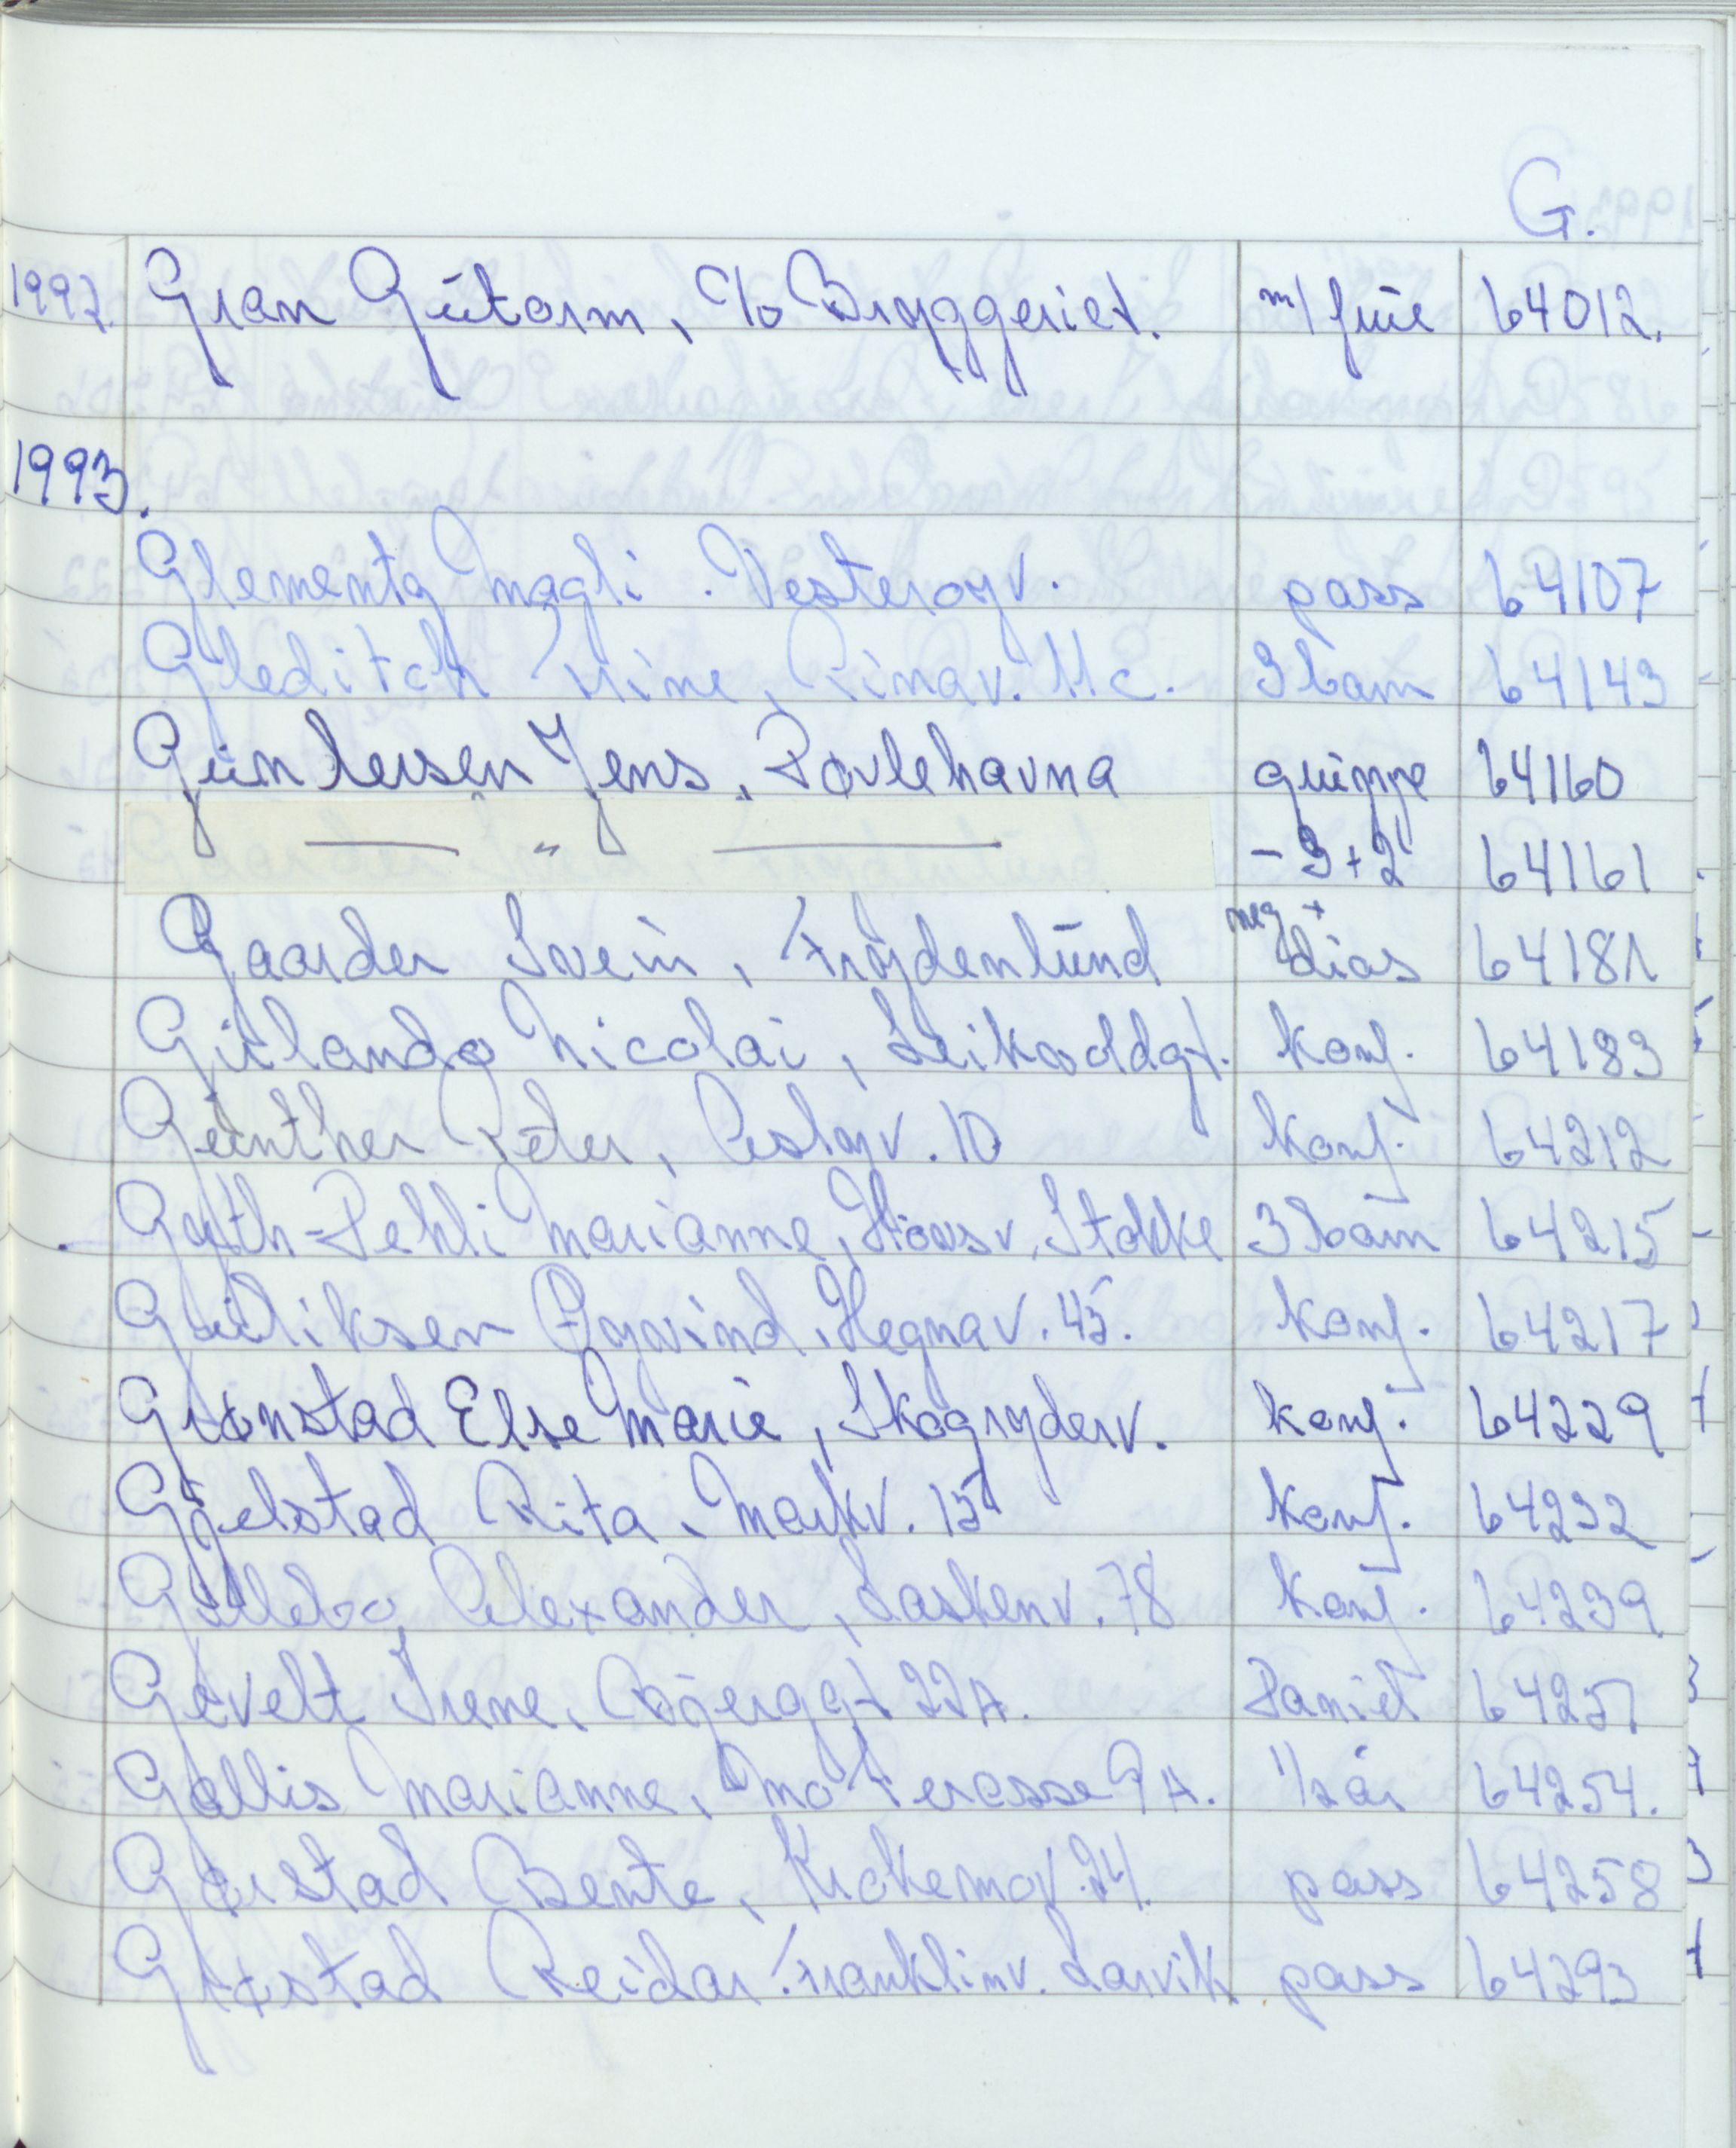 G.
1992. Gran Gutorm, c/o Bryggeriet. m/frue 64012.
1993.
Glementz Magli. Vesterøyv. pass 64107
Gleditch Trine, Rinav. 11c. 3 barn 64143
Guntersen Jens, Povlehavna gruppe 64160
— " — - 3+2 64161
Gaarder Svein, Frydenlund neg + dias 64181
Girlando Nicolai, Leikvoldgt. konf. 64183
Günther Peter, Aslayv. 10 konf. 64212
Guth-Pehli Marianne, Stokke 3 barn 64215
Gulliksen Øyvind, Hegnav. 45. konf. 64217
Grønstad Else Marie, Skogryderv. konf. 64229
Gjelstad Rita, Markv. 15 konf. 64232
Gullebo Alexander, Laskenv. 78 konf. 64239
Gevelt Irene, Bjerggt 22A. Daniel 64251
Gallis Marianne, Mo Terasse 9A. 1/2 år 64254.
Gaustad Bente, Krokemov. 24. pass 64258
Grøstad Reidar Franklinv. Larvik pass 64293